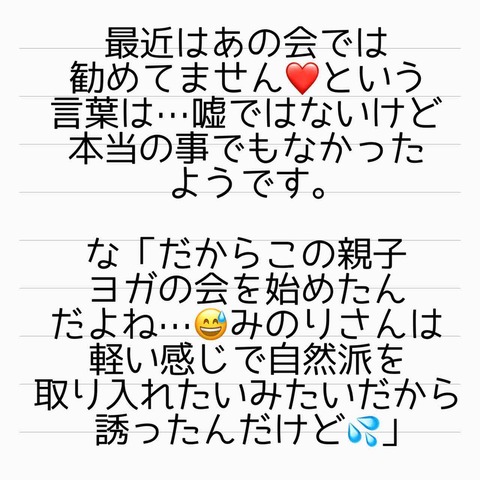 最近はあの会では
勧めてません❤️という
言葉は…嘘ではないけど
本当の事でもなかった
ようです。
な「だからこの親子
ヨガの会を始めたん
だよね…😅みのりさんは
軽い感じで自然派を
取り入れたいみたいだから
誘ったんだけど💦」